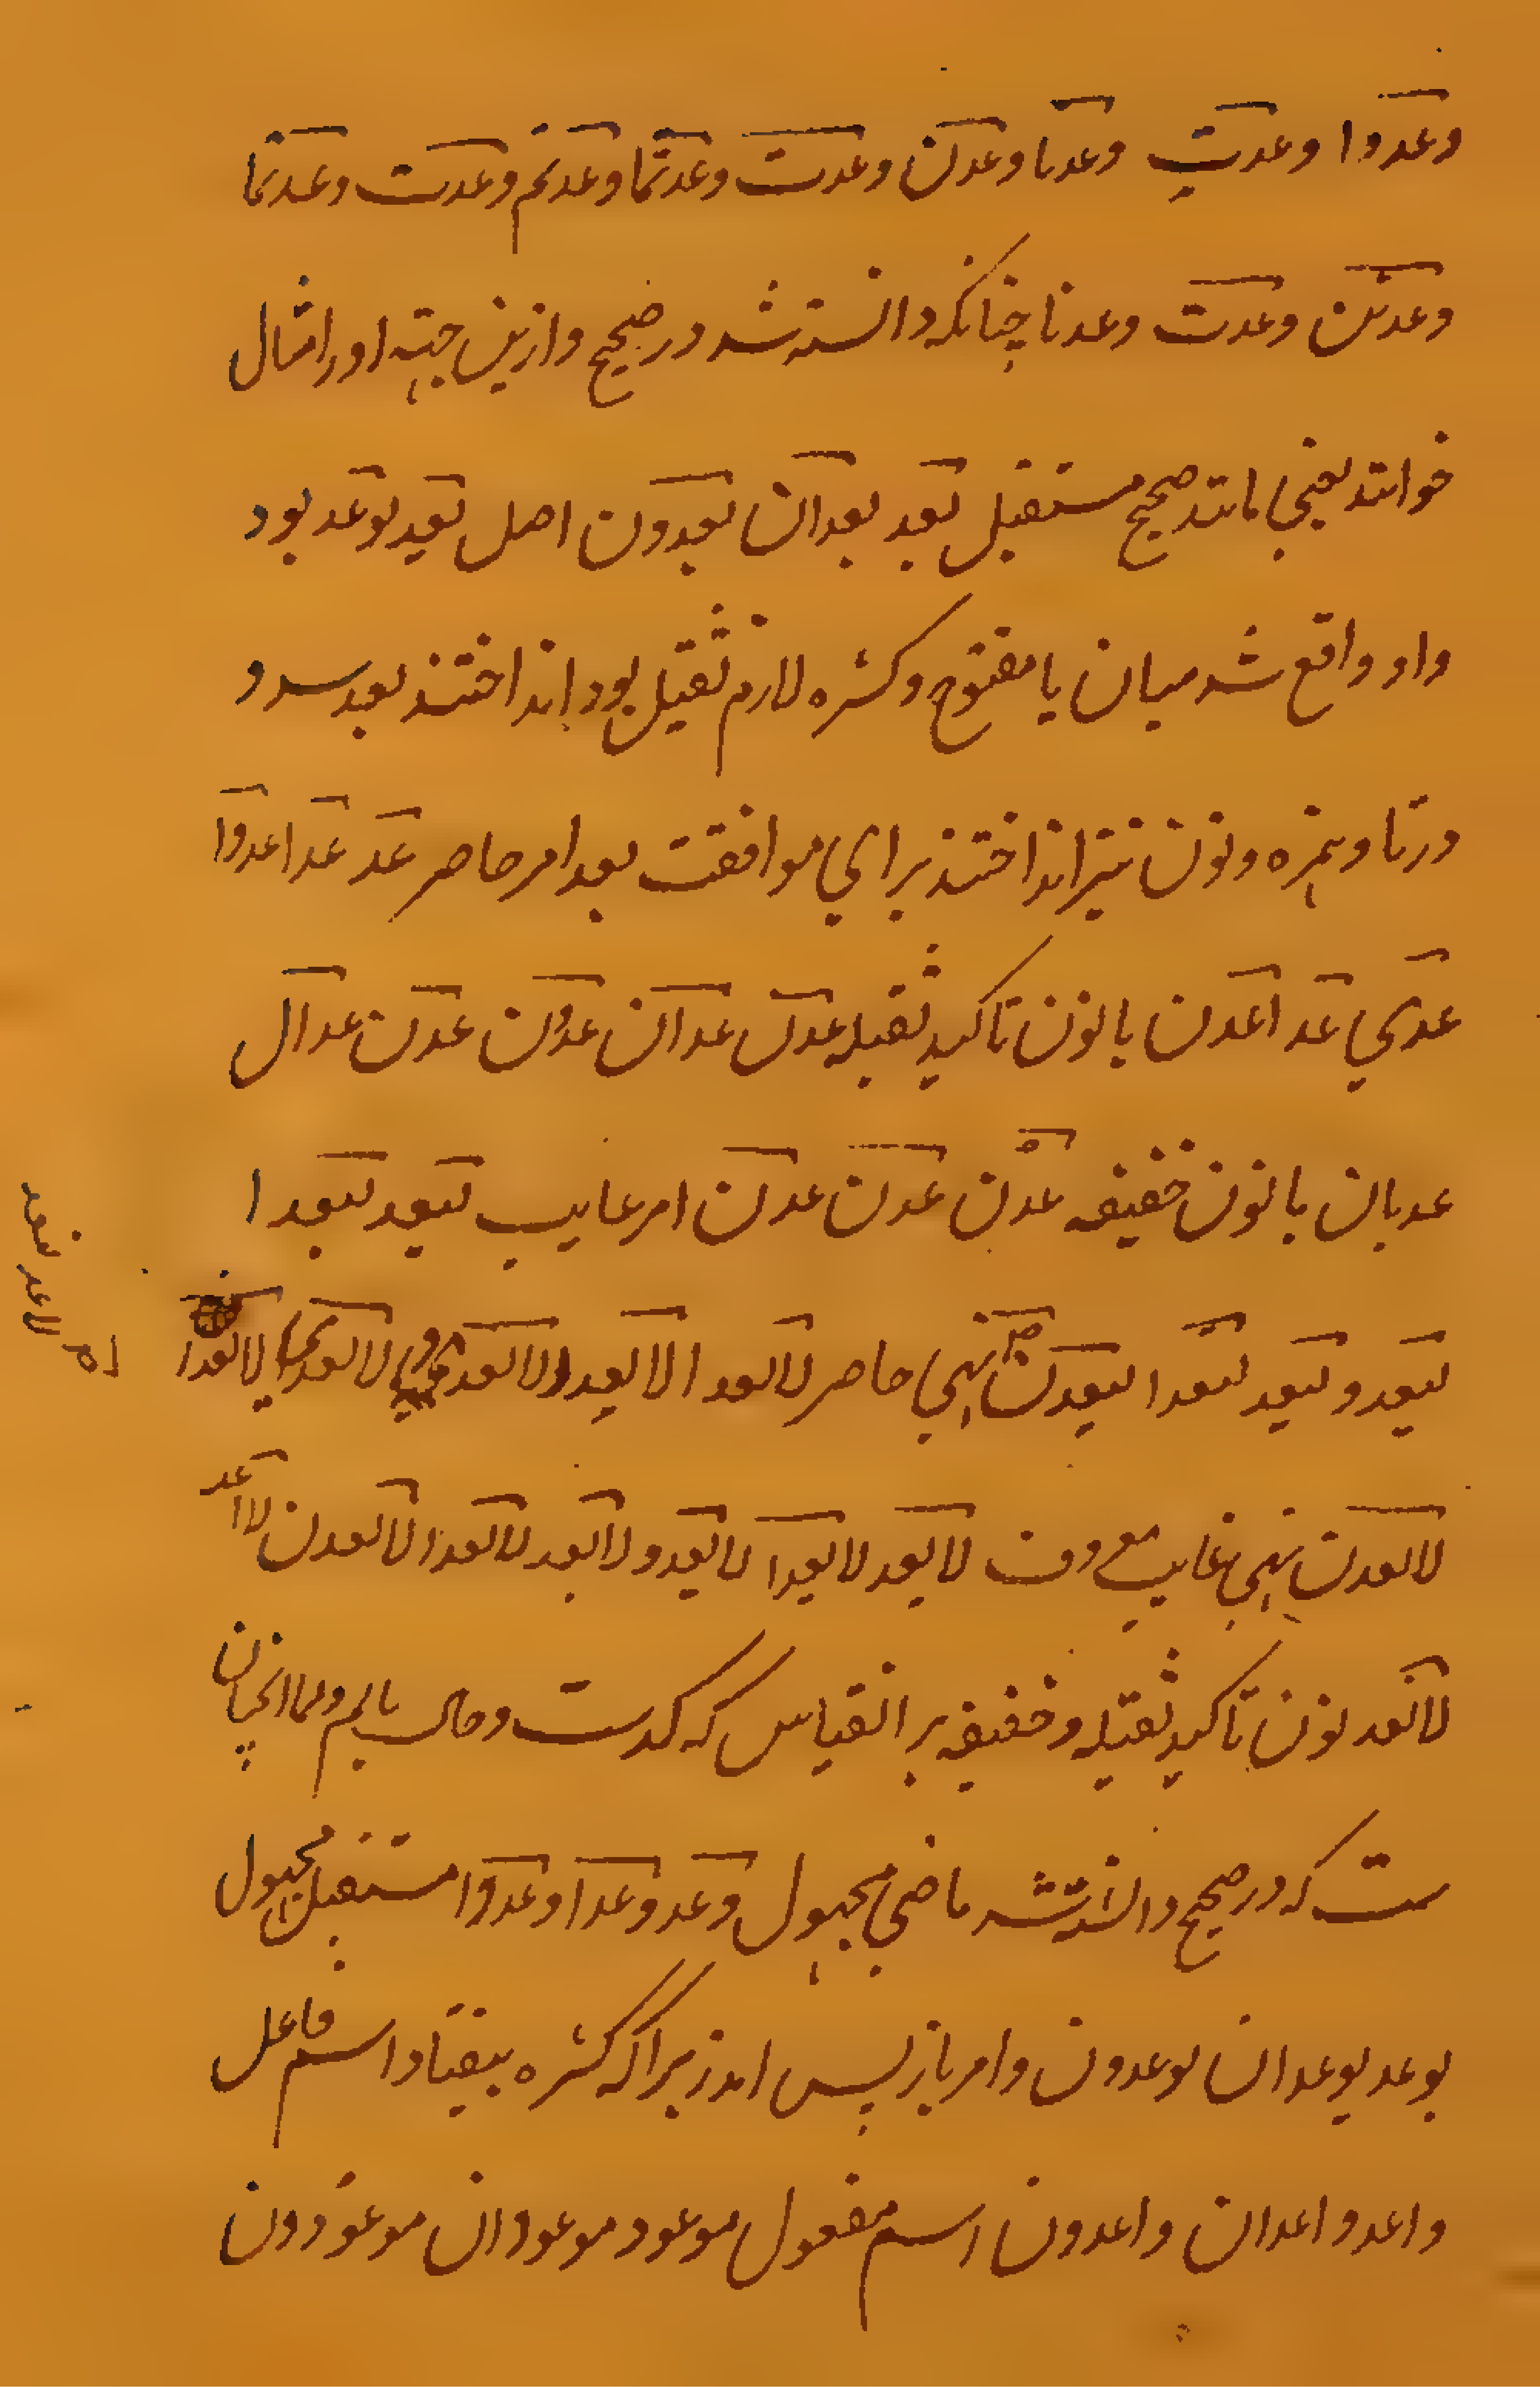 وعدوا وعدت وعدتا وعدن وعدت وعدتما وعدتم وعدت وعدتما
وعدتن وعدت وعدنا چنانکه دانسته شد در صحیح و ازین جهته او را مثال
خوانند یعنی مانند صحیح مستقبل یعد یعدان یعدون اصل یعد یوعد بود
واو واقع شد میان یا مفتوح و کسره لازم ثقیل بود انداختند یعد شد و
در تا و همزه و نون نیز انداختند برای موافقت یعد امر حاضر عد عدا عدوا
عدی عدا عدن با نون تاکید ثقیله عدن عدان عدن عدن عدان
عدنان با نون خفیفه عدن عدن عدن امر غایب لیعد لیعدا
لیعدوا لتعد لتعدا لیعدن نهی حاضر لا تعد لا تعدا لا تعدوا لا تعدی لا تعدا
لا تعدن نهی غایب معروف لا یعد لا یعدا لا یعدو لا تعد لا تعدا لا یعدن لا اعد
لا نعد نون تاکید ثقیله و خفیفه بر انقیاس که کذشت و حال بالم و لما انچنان
ست که در صحیح دانسته شد ماضی مجهول وعد وعدا وعدوا مستقبل مجهول
یوعد یوعدان یوعدون واو باز پس امد زیراکه کسره بیفتاد اسم فاعل
واعد واعدان واعدون اسم مفعول موعود موعودان موعودون